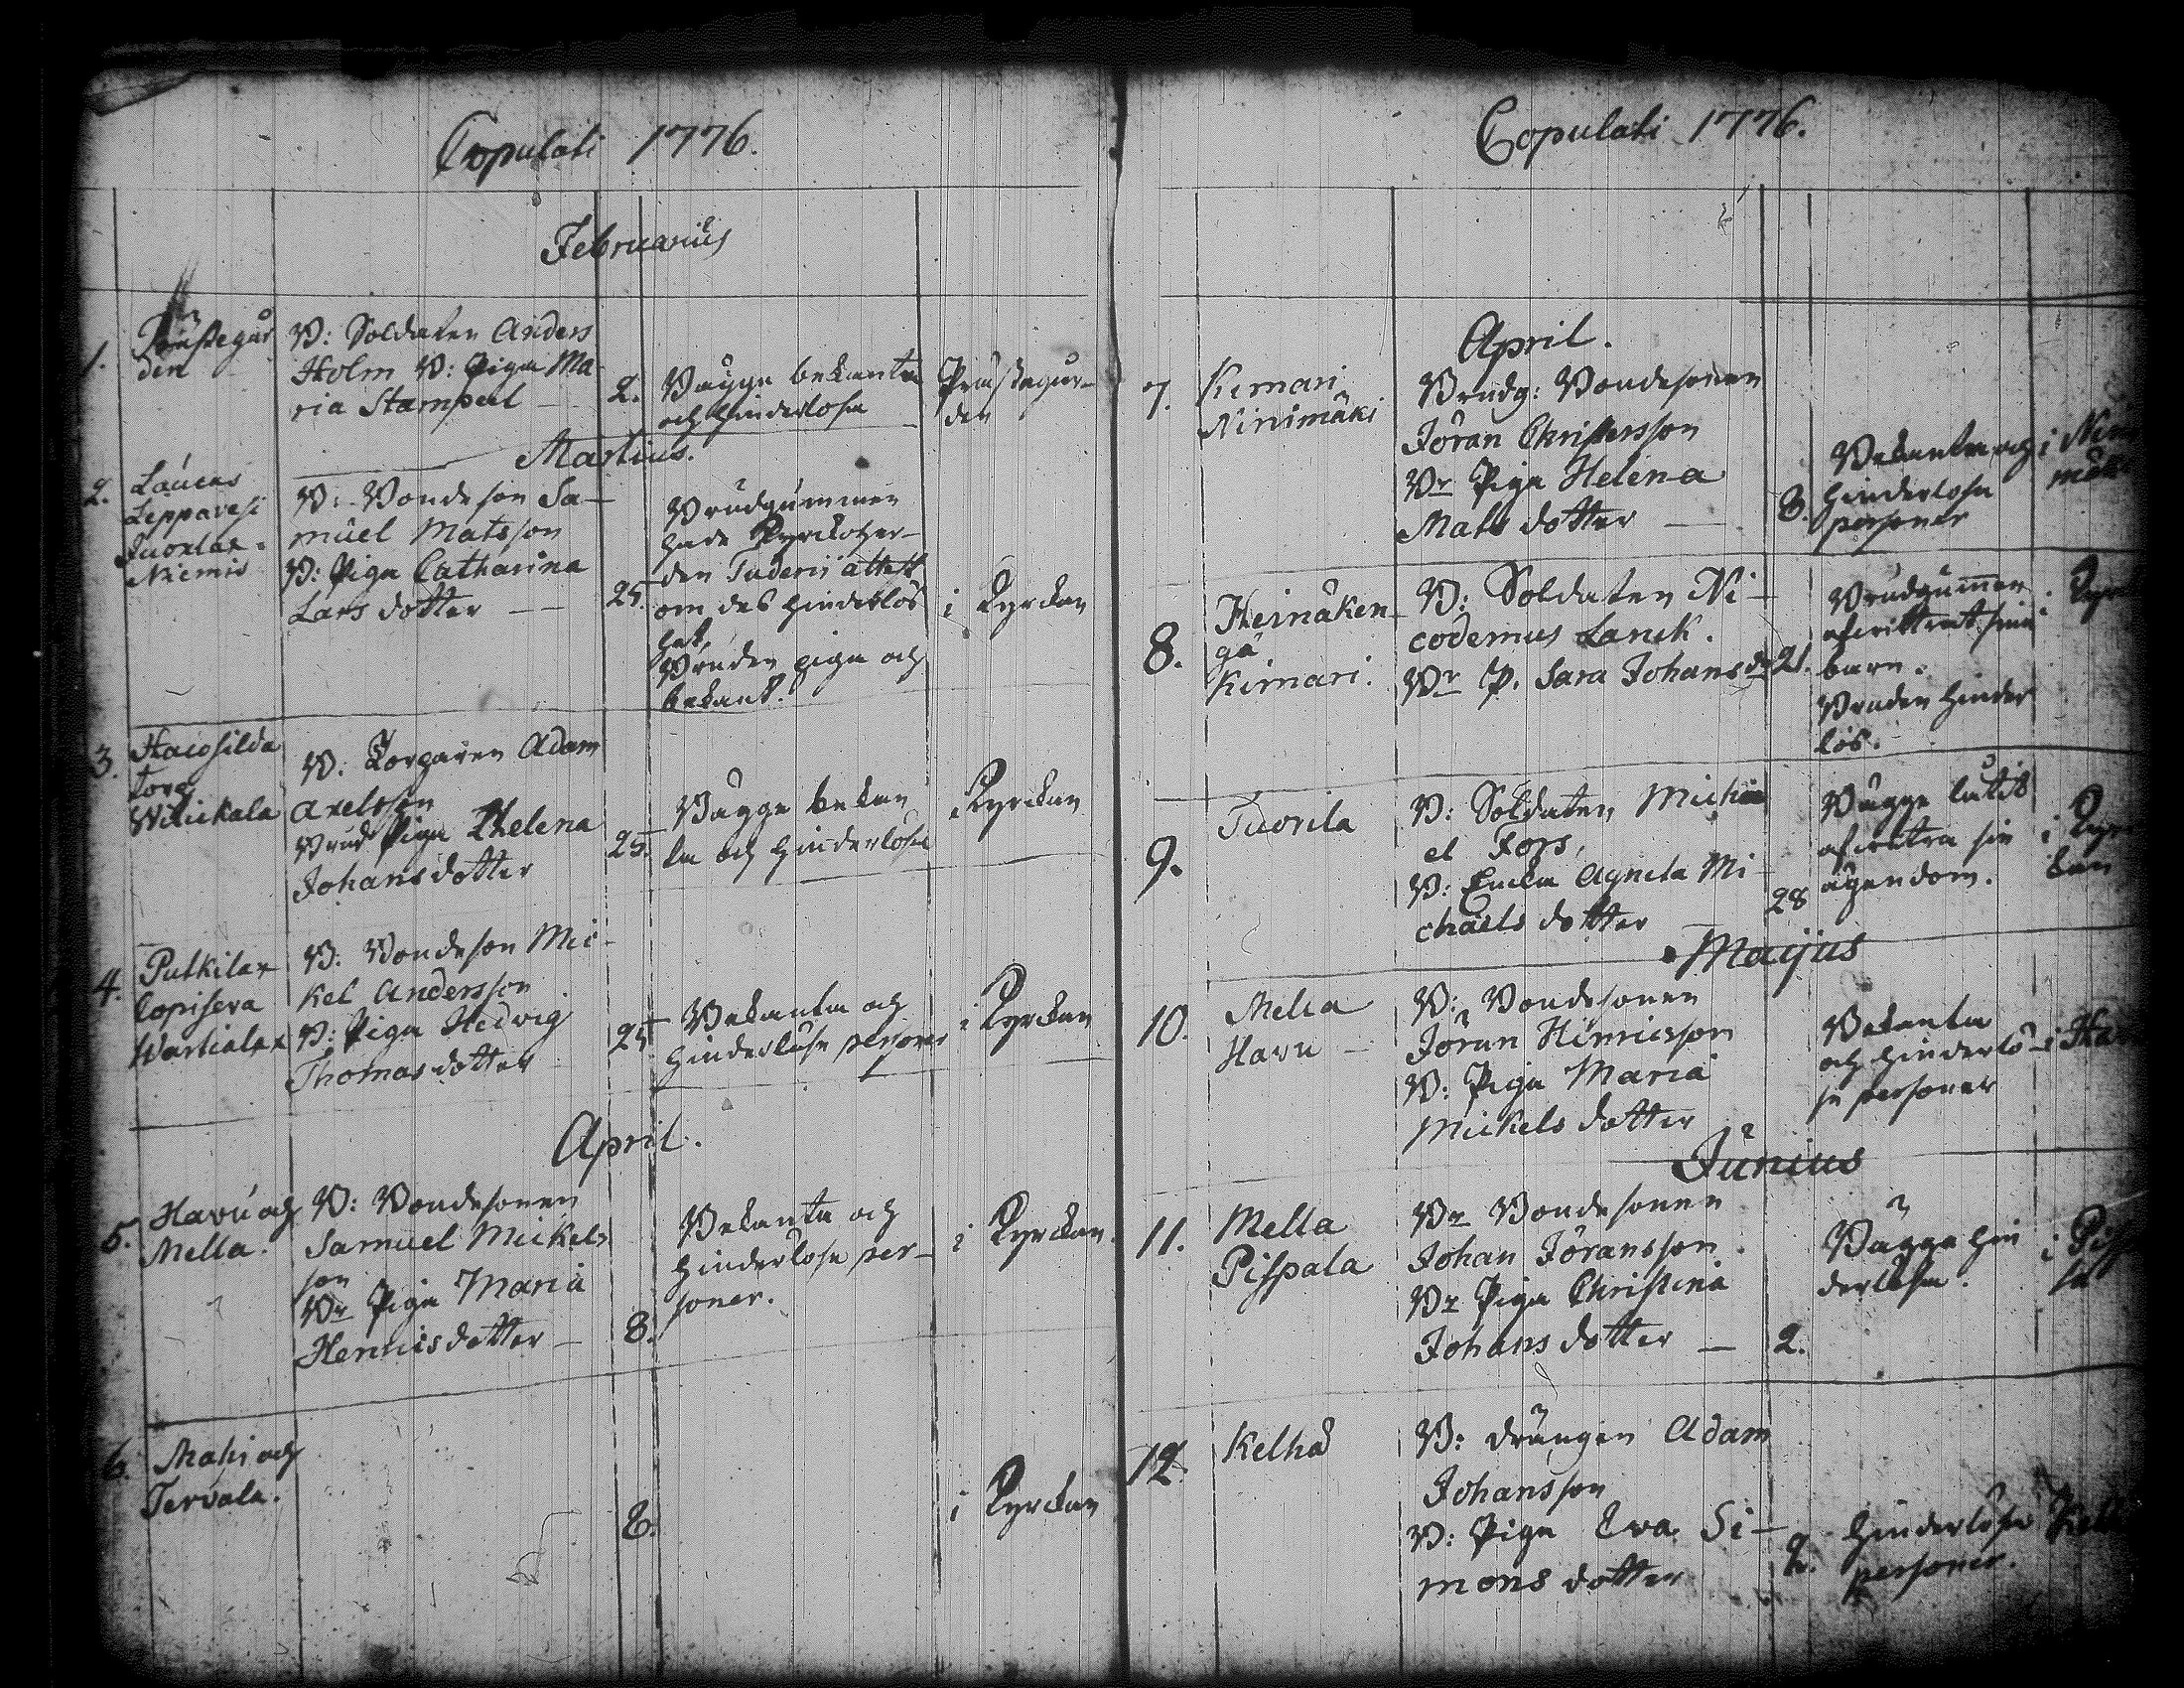 Copulati 1776.
Februarius
1.
Prästegår
den
B: Soldaten Anders
Holm B: Pigan Ma
ria Stampeel —
2.
Bägge bekanta
och hinderlösa
Prästegår-
den
Martius.
2.
Laucas
Leppavesi
Niemis
B: Bondeson Sa-
muel Matsson
B: Pigan Catharina
Lars dotter — —
25.
Brudgummen
hade Kyrckoher-
den Tuderii attest
om des hinderlös
het,
Bruden piga och
bekant.
i Kyrckan
3.
Torp
Wilickala
B: Torparen Adam
Axelsson
Brud Pigan Helena
Johans dotter
25.
Bägge bekan
ta och hinderlösa
Kyrckan
4.
Putkilax
Wartialax
B: Bondeson Mic-
kel Andersson
B: Pigan Hedvig
Thomas dotter
25
Bekanta och
hinderlösa personer
i Kyrckan
April.
5.
Havu och
Mella.
B: Bondesonen
Samuel Mickels
son
Br Pigan Maria
Henricsdotter —
8.
Bekanta och
hinderlösa per-
soner.
i Kyrckan.
6.
och
Tervala.
8.
i Kyrckan
Copulati 1776.
April.
7.
Kimari
Ninimäki
Brudg: Bondesonen
Jöran Christersson
Br Pigan Helena
Mats dotter —
8.
Bekanta och
hinderlösa
personer
i Nini
mäki
8.
Heinäken-
gä
Kimari.
B: Soldaten Ni-
codemus Lanck.
Br P. Sara Johans dr
21.
Brudgummen
afvittrat sina
barn.
Bruden hinder
lös.
i
9.
Tuorila
B: Soldaten Micha
el Fors,
B: Enkan Agneta Mi-
chaels dotter
28
Bägge låtit
afvittra sin
ägendom.
i Kyr
kan
Majus
10.
Mella
Havu —
B: Bondesonen
Jöran Hinricsson
B: Pigan Maria
Mickels dotter
Bekanta
och hinderlö-
sa personer
i
Junius
11.
Mella
Pispala
Br Bondesonen
Johan Jöransson.
Br Pigan Christina
Johans dotter —
2.
Bägge hin
derlösa.
i
12.
Kelhä
B: drängen Adam
Johansson
B: Pigan Eva Si-
mons dotter
2.
hinderlösa
personer.